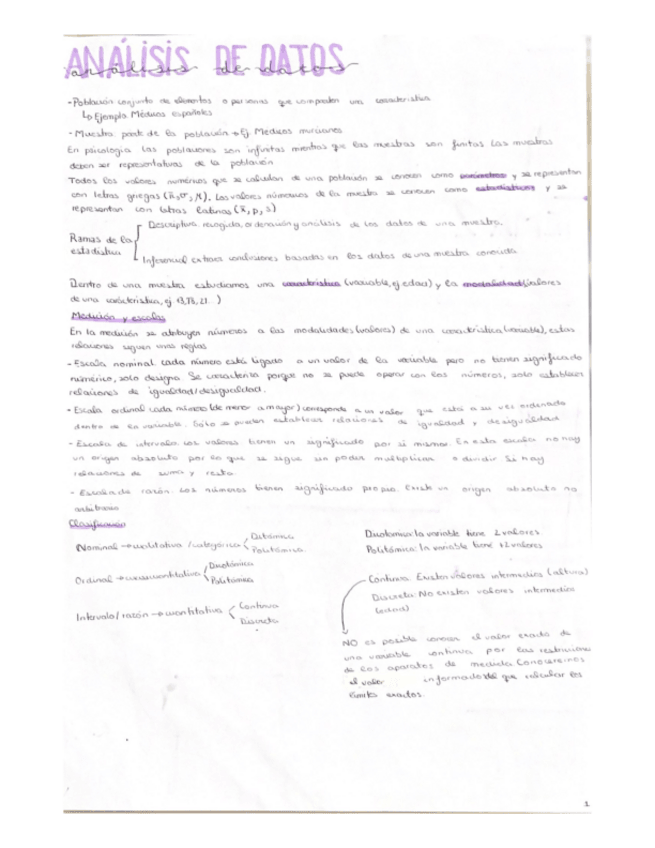 ANÁLISIS DE DATOS
análisis de datos
- Población conjunto de elementos o personas que comparten una característica
↳ Ejemplo Médicos españoles
- Muestra parte de la población → Ej Médicos murcianos
En psicología las poblaciones son infinitas mientras que las muestras son finitas Las muestras
deben ser representativas de la población
Todos los valores numéricos que se calculan de una población se conocen como parámetros y se representan
con letras griegas Los valores númericos de la muestra se conocen como estadísticos y se
representan con letras latinas (x̄, p, s)
Descriptiva recogida, ordenación y análisis de los datos de una muestra.
Ramas de la
estadística
Inferencial extraer conclusiones basadas en los datos de una muestra conocida
Dentro de una muestra estudiamos una característica (variable, ej edad) y la modalidad (valores
de una característica, ej 13, 18, 21...)
Medición y escalas
En la medición se atribuyen números a las modalidades (valores) de una característica (variable), estas
relaciones siguen unas reglas
- Escala nominal cada número está ligado a un valor de la variable pero no tienen significado
numérico, solo designa. Se caracteriza porque no se puede operar con los números, solo establecer
relaciones de igualdad/desigualdad.
- Escala ordinal cada número (de menor a mayor) corresponde a un valor que está a su vez ordenado
dentro de la variable. Sólo se pueden establecer relaciones de igualdad y desigualdad
- Escala de intervalo. Los valores tienen un significado por si mismos. En esta escala no hay
un origen absoluto por lo que se sigue sin poder multiplicar o dividir Si hay
relaciones de suma y resta.
- Escala de razón. Los números tienen significado propio. Existe un origen absoluto no
arbitrario
Clasificación
Nominal → cualitativa / categórica
Dicotómica
Politómica
Ordinal → cuasicuantitativa
Dicotómica
Politómica
Intervalo / razón → cuantitativa
Continua
Discreta
Dicotomica: la variable tiene 2 valores.
Politómica: la variable tiene +2 valores
Continua. Existen valores intermedios (altura)
Discreta: No existen valores intermedios
(edad)
NO es posible conocer el valor exacto de
una variable continua por las restricciones
de los aparatos de medida. Conoceremos
el valor informado del que calcular los
límites exactos.
1